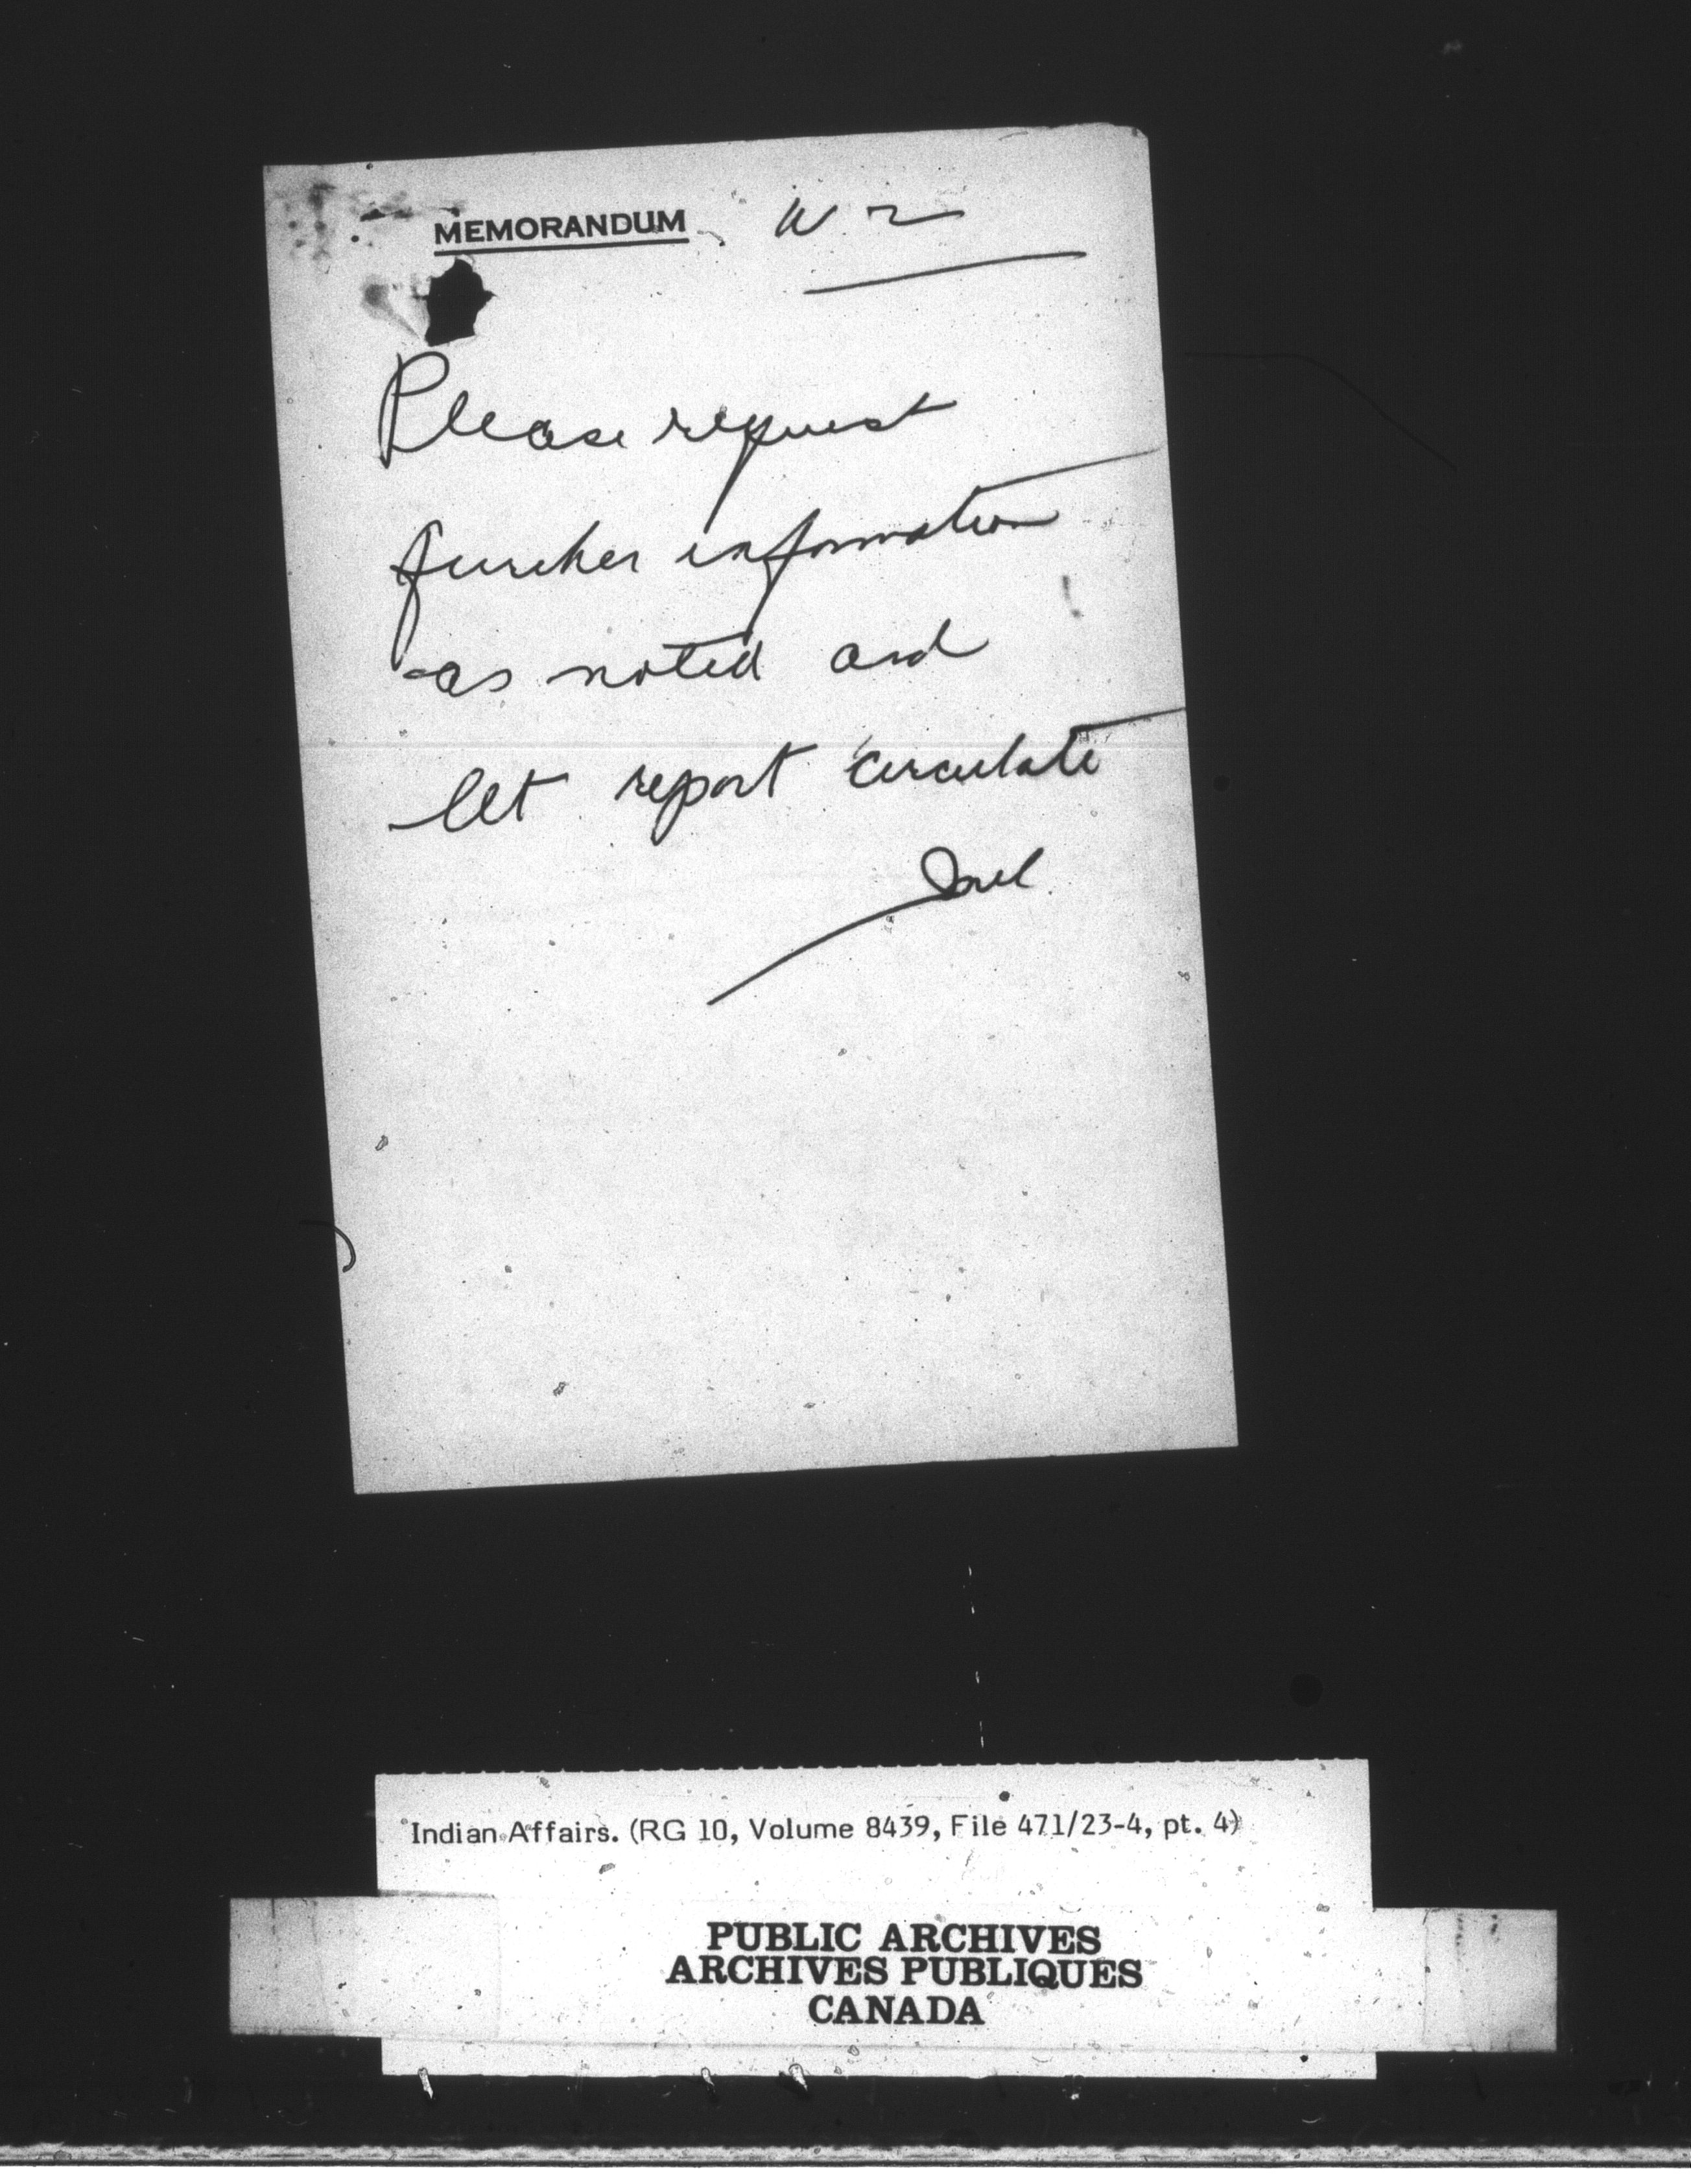 MEMORANDUM
Please request
further information
as noted and
let report circulate
Indian Affairs. (RG 10, Volume 8439, File 471/23-4, pt. 4)
PUBLIC ARCHIVES
ARCHIVES PUBLIQUES
CANADA